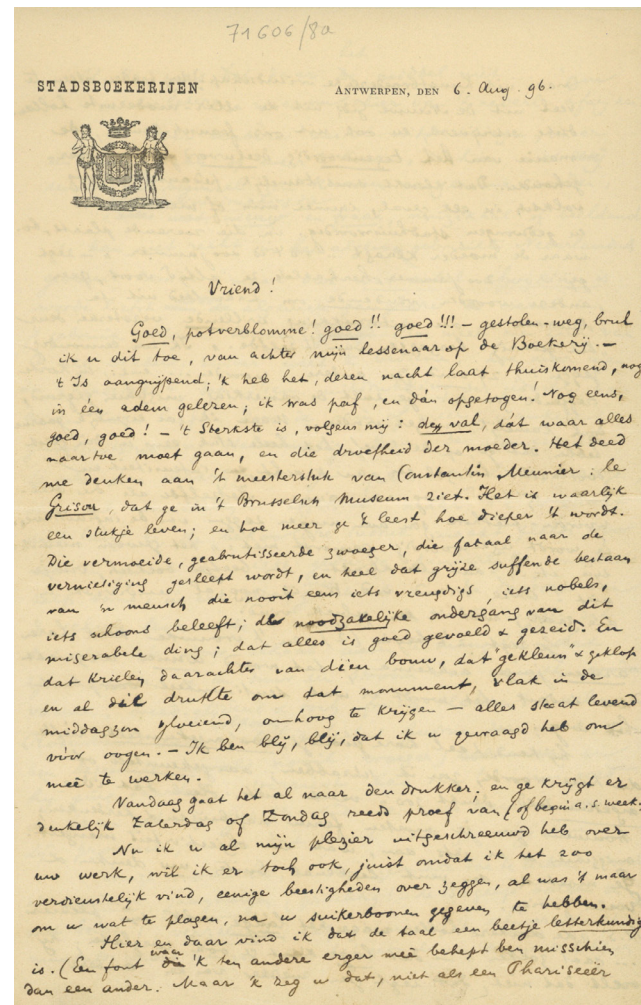 71606/8a
STADSBOEKERIJEN
ANTWERPEN, DEN 6. Aug. 96.
Vriend!
Goed, potverblomme! goed!! goed!!! – gestolen-weg, brul
ik u dit toe, van achter mijn lessenaar op de Boekerij. –
't Is aangrijpend; 'k heb het, deren nacht laat thuiskomend, nog
in één adem gelezen; ik was paf, en dán opgetogen! Nog eens,
goed, goed! – 't Sterkste is, volgens mij: den val, dát waar alles
naartoe moet gaan, en die droefheid der moeder. Het deed
me denken aan 't meesterstuk van Constantin Meunier: le
Grisou, dat ge in 't Brusselsch Museum ziet. Het is waarlijk
een stukje leven; en hoe meer ge 't leest hoe dieper 't wordt.
Die vermoeide, geabrutisseerde zwoeger, die fataal naar de
vernietiging gesleept wordt, en heel dat grijze suffende bestaan
van 'n mensch die nooit eens iets vreugdigs, iets nobels,
iets schoons beleeft; de noodzakelijke ondergang van dit
miserabele ding; dat alles is goed gevoeld & gezeid. En
dat krielen daarachter van dien bouw, dat "gekleun" & geklop
en al die drukte om dat monument, vlak in de
middagzon gloeiend, omhoog te krijgen – alles staat levend
vóór oogen. – Ik ben blij, blij, dat ik u gevraagd heb om
meê te werken.
Vandaag gaat het al naar den drukker; en ge krijgt er
denkelijk Zaterdag of Zondag reeds proef van (of begin a.s. week.
Nu ik u al mijn plezier uitgeschreeuwd heb over
uw werk, wil ik er toch ook, juist omdat ik het zoo
verdienstelijk vind, eenige beestigheden over zeggen, al was 't maar
om u wat te plagen, na u suikerboonen gegeven te hebben.
Hier en daar vind ik dat de taal een beetje letterkundig
is. (Een fout waar 'k ten andere erger meê behept ben misschien
dan een ander. Maar 'k zeg u dat, niet als een Phariseeër